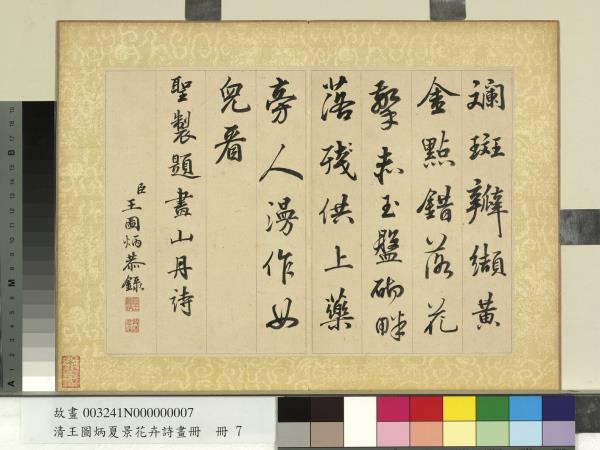 斕斑瓣纈黃
金點錯落花
擎赤玉盤砌畔
落殘供上藥
旁人漫作女
兒看
聖製題畫山丹詩
臣王圖炳恭錄
故畫 003241N000000007
清王圖炳夏景花卉詩畫冊 冊 7